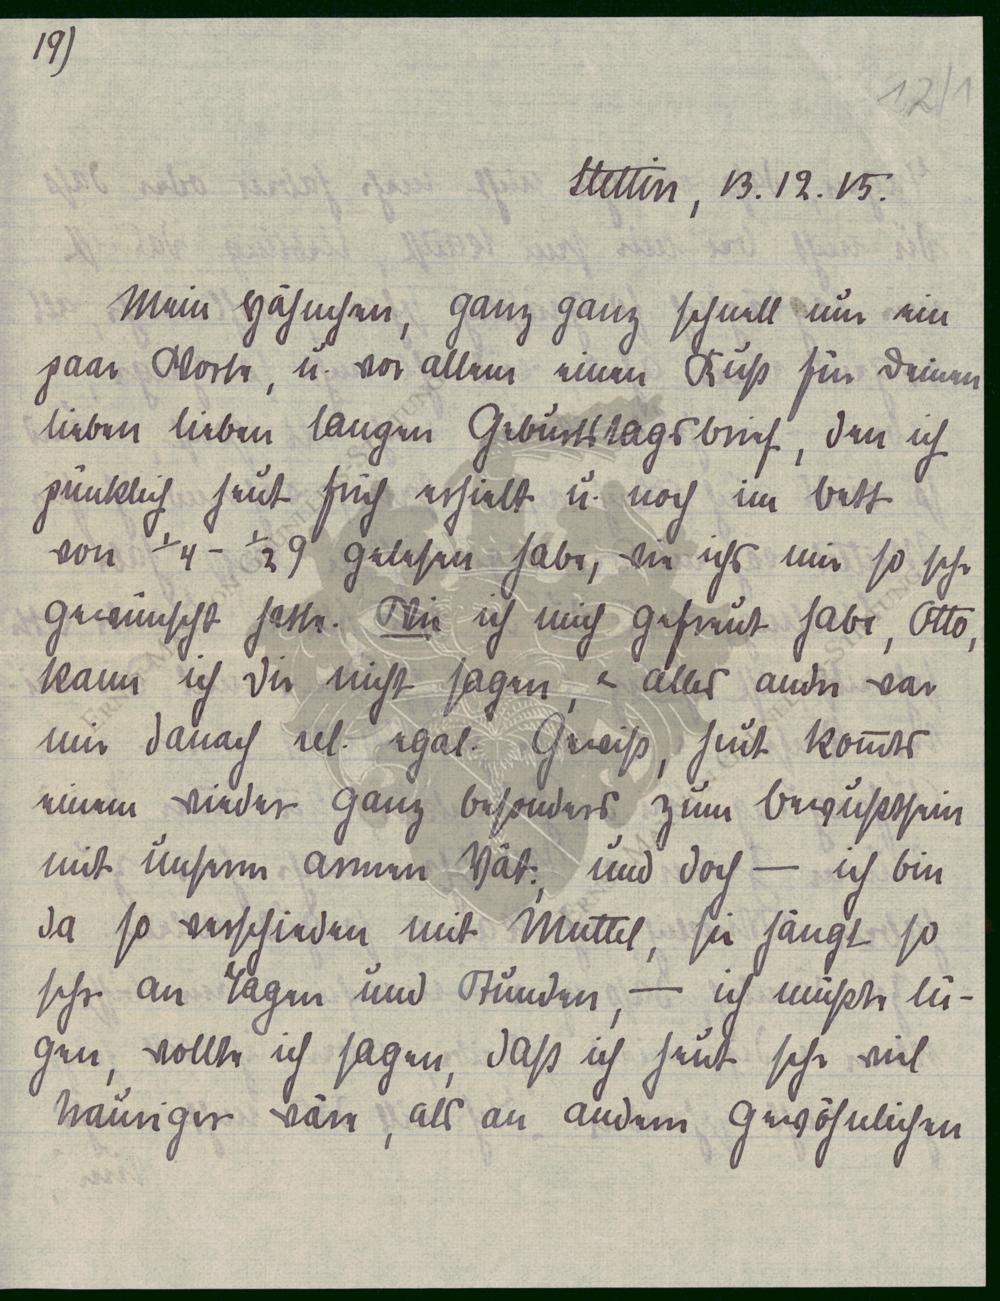 19)
12/1
Stettin, 13.12.15.
Mein Hähnchen, ganz ganz schnell nur ein
paar Worte, u. vor allem einen Kuß für Deinen
lieben lieben langen Geburtstagsbrief, den ich
pünktlich heut früh erhielt u. noch im Bett
von 1/4 - 1/2 9 gelesen habe, wie ichs mir so sehr
gewünscht hatte. Wie ich mich gefreut habe, Otto,
kann ich Dir nicht sagen, alles andre war
mir danach rel. egal. Gewiß, heut kom̅ts
einem wieder ganz besonders zum Bewußtsein
mit unserm armen Vät., und doch — ich bin
da so verschieden mit Muttel, sie hängt so
sehr an Tagen und Stunden, — ich müßte lü-
gen, wollte ich sagen, daß ich heut sehr viel
trauriger wäre, als an andern gewöhnlichen